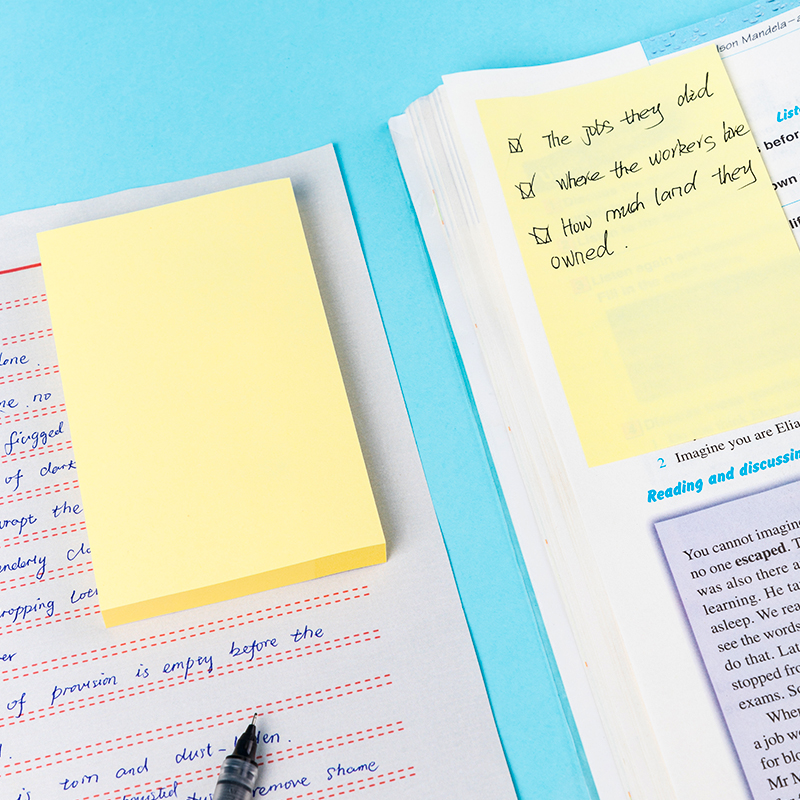 done.
no
of dark
the
of provision is empty before the
is torn and dust-laden.
remove shame
lson Mandela–
☑ The jobs they did
☑ where the workers live
☑ How much land they
owned.
List
befor
own
lif
2 Imagine you are Elia
Reading and discussin
You cannot imagin
no one escaped. T
was also there a
learning. He ta
asleep. We rea
see the words
do that. Lat
stopped fro
exams. So
When
a job wo
for blo
Mr M